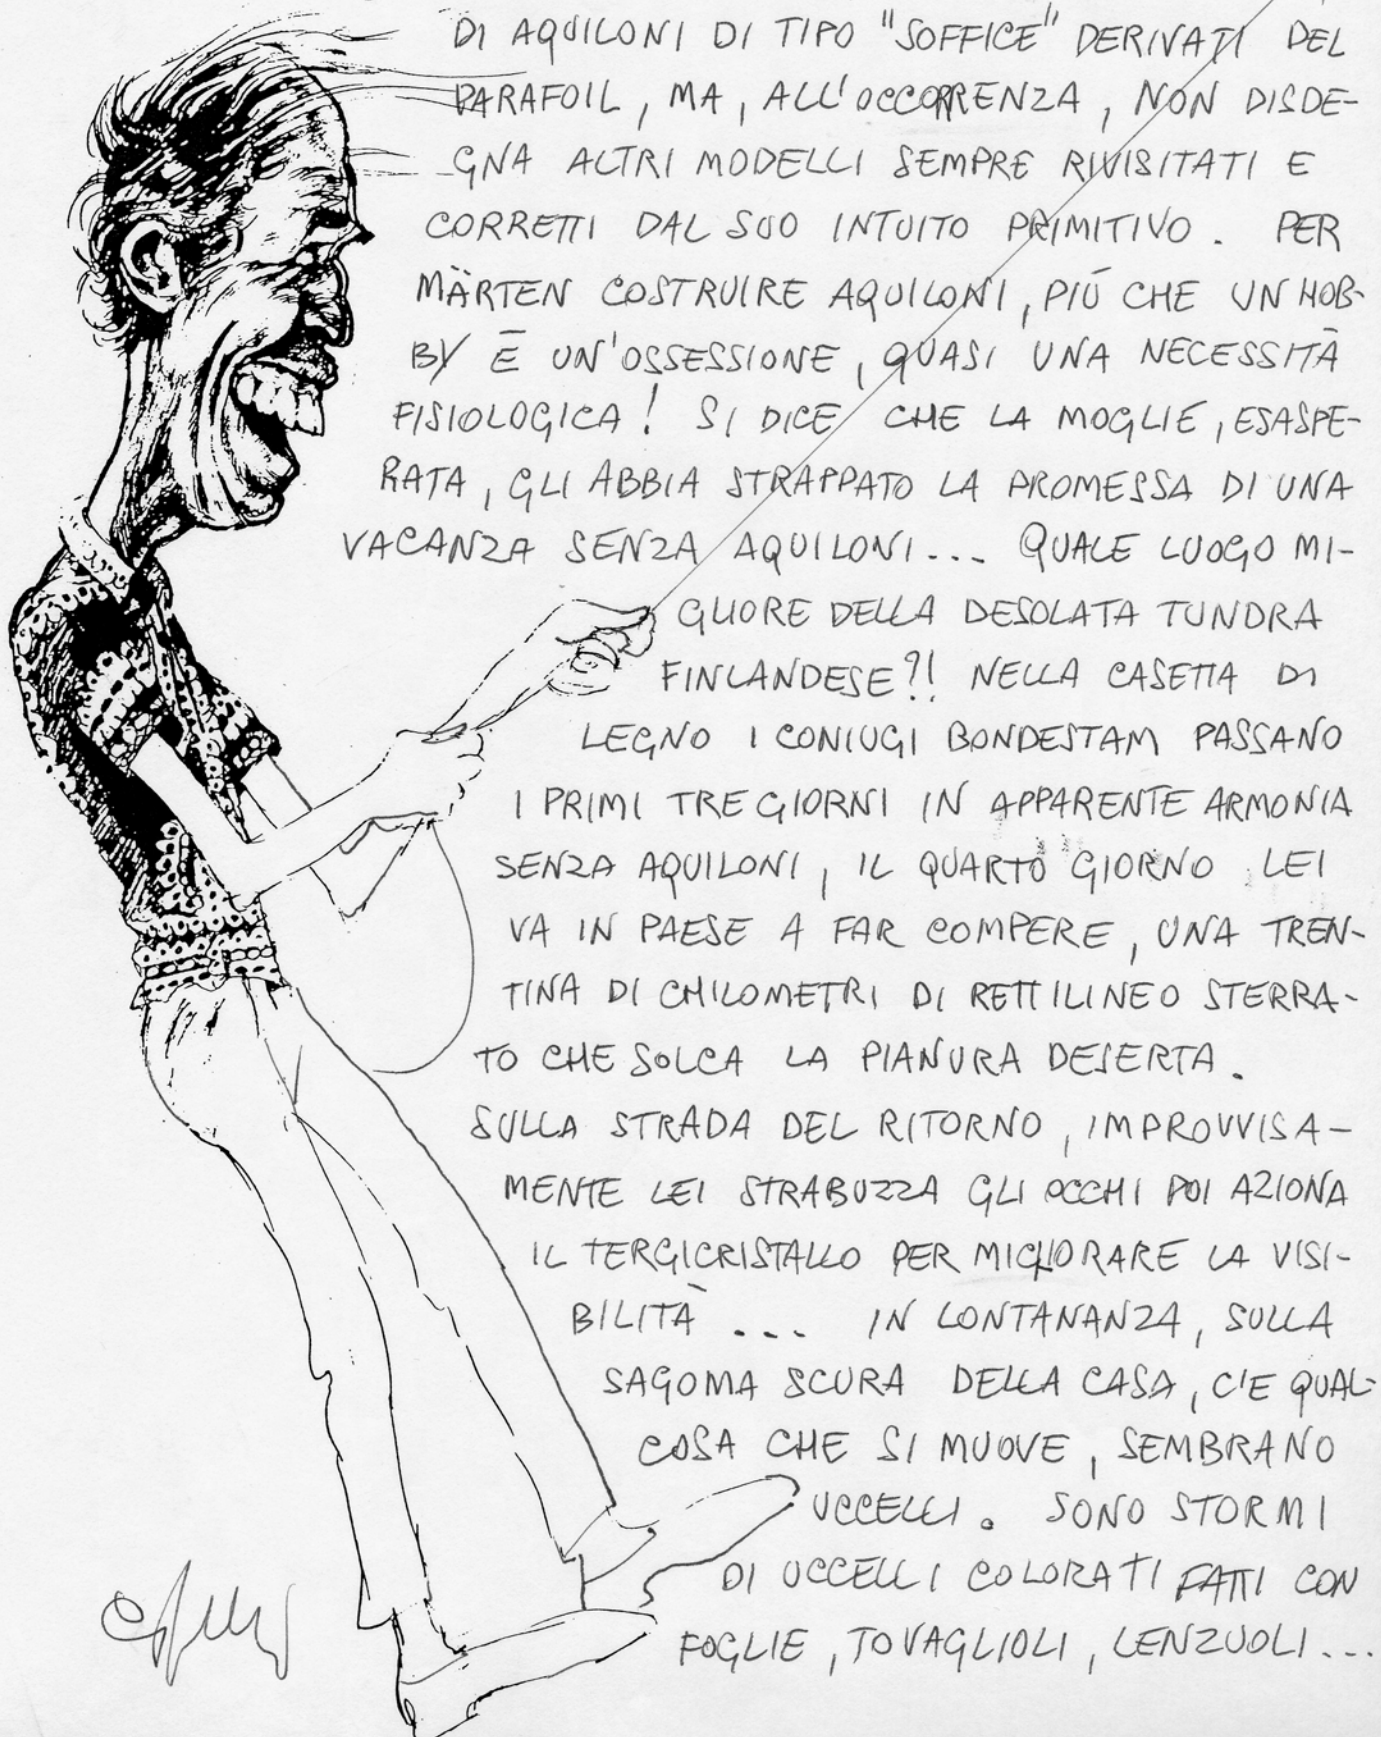 DI AQUILONI DI TIPO "SOFFICE" DERIVATI DEL
PARAFOIL, MA, ALL'OCCORRENZA, NON DISDE-
GNA ALTRI MODELLI SEMPRE RIVISITATI E
CORRETTI DAL SUO INTUITO PRIMITIVO. PER
MÄRTEN COSTRUIRE AQUILONI, PIÚ CHE UN HOB-
BY Ē UN'OSSESSIONE, QUASI UNA NECESSITÀ
FISIOLOGICA! SI DICE CHE LA MOGLIE, ESASPE-
RATA, GLI ABBIA STRAPPATO LA PROMESSA DI UNA
VACANZA SENZA AQUILONI... QUALE LUOGO MI-
GLIORE DELLA DESOLATA TUNDRA
FINLANDESE?! NELLA CASETTA DI
LEGNO I CONIUGI BONDESTAM PASSANO
I PRIMI TRE GIORNI IN APPARENTE ARMONIA
SENZA AQUILONI, IL QUARTO GIORNO LEI
VA IN PAESE A FAR COMPERE, UNA TREN-
TINA DI CHILOMETRI DI RETTILINEO STERRA-
TO CHE SOLCA LA PIANURA DESERTA.
SULLA STRADA DEL RITORNO, IMPROVVISA-
MENTE LEI STRABUZZA GLI OCCHI POI AZIONA
IL TERGICRISTALLO PER MIGLIORARE LA VISI-
BILITÀ ... IN LONTANANZA, SULLA
SAGOMA SCURA DELLA CASA, C'E QUAL-
COSA CHE SI MUOVE, SEMBRANO
UCCELLI. SONO STORMI
DI UCCELLI COLORATI FATTI CON
FOGLIE, TOVAGLIOLI, LENZUOLI...